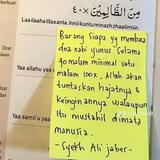 مِنَ الظَّالِمِيْنَ ×٤٠
Laa ilaaha illaa anta. Innii kuntu minazh zhaalimiin.
Barang siapa yg membaca
doa nabi yunus Selama
40 malam minimal satu
malam 100x, Allah akan
tuntaskan hajatnya &
keinginannya walaupun
itu mustahil dimata
manusia.
-Syekh Ali jaber-
Yaa allahu yaa
Yaa samii'u yaa